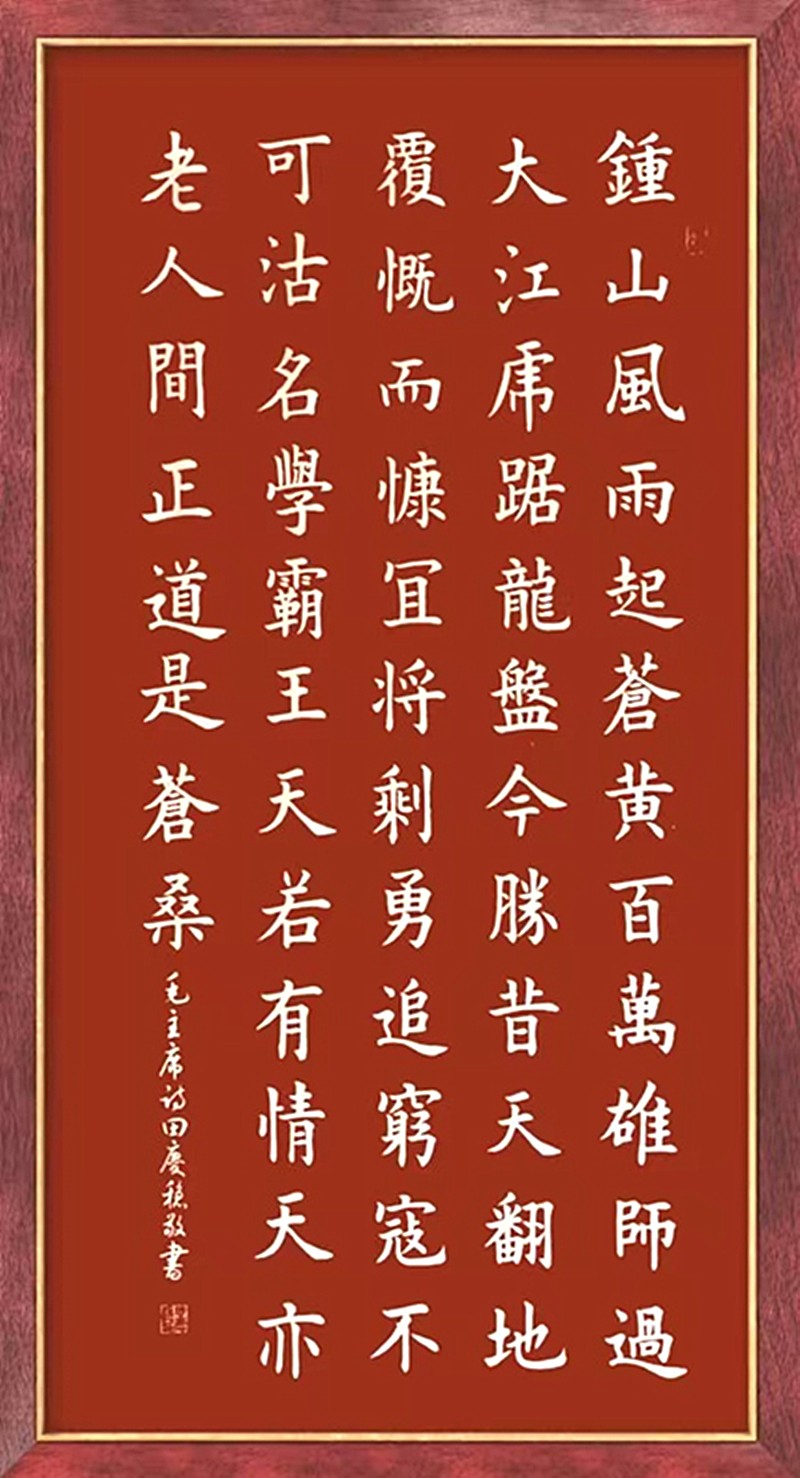 鍾山風雨起蒼黄百萬雄師過
大江虎踞龍盤今勝昔天翻地
覆慨而慷冝将剩勇追窮寇不
可沽名學霸王天若有情天亦
老人間正道是蒼桑
毛主席诗田慶穏敬書